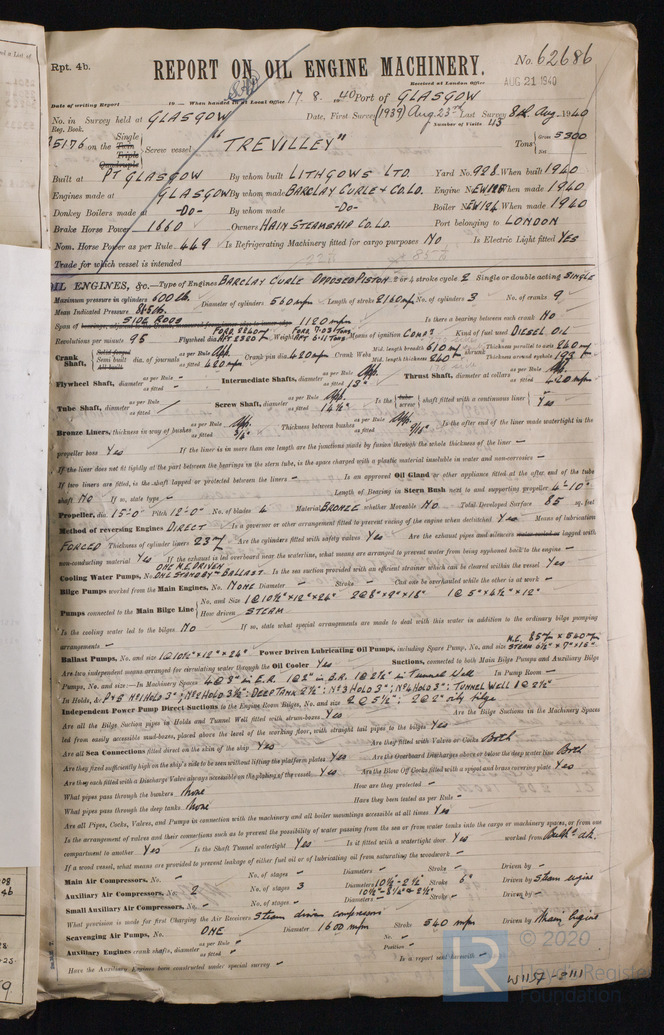 Rpt. 4b.
REPORT ON OIL ENGINE MACHINERY.
No. 62686
Received at London Office
AUG 21 1940
Date of writing Report 19 When handed in at Local Office 17. 8. 1940 Port of GLASGOW
No. in Survey held at GLASGOW Date, First Survey (1939) Aug 23rd Last Survey 8th Aug. 1940
Reg. Book. Number of Visits 43
on the Single Twin Triple Quadruple Screw vessel "TREVILLEY" Tons Gross 5300 Net
Built at PT GLASGOW By whom built LITHGOWS LTD. Yard No. 928 When built 1940
Engines made at GLASGOW By whom made BARCLAY CURLE & CO. LD. Engine No. When made 1940
Donkey Boilers made at -Do- By whom made -Do- Boiler No. When made 1940
Brake Horse Power 1660 Owners HAIN STEAMSHIP CO. LD. Port belonging to LONDON
Nom. Horse Power as per Rule 449 Is Refrigerating Machinery fitted for cargo purposes NO Is Electric Light fitted YES
Trade for which vessel is intended
OIL ENGINES, &c.—Type of Engines BARCLAY CURLE OPPOSED PISTON 2 or 4 stroke cycle 2 Single or double acting SINGLE
Maximum pressure in cylinders 600 lb. Diameter of cylinders 560 m/m Length of stroke 2160 m/m No. of cylinders 3 No. of cranks 9
Mean Indicated Pressure 85 lb.
SIDE RODS 1120 m/m Is there a bearing between each crank NO
Revolutions per minute 95 Flywheel dia. Weight Means of ignition COMPN Kind of fuel used DIESEL OIL
Crank Shaft, Solid forged Semi built All built dia. of journals as per Rule App. as fitted 420 m/m Crank pin dia. 420 m/m Crank Webs Mid. length breadth 610 m/m Mid. length thickness 260 m/m shrunk Thickness parallel to axis 260 m/m Thickness around eyehole 193 m/m
Flywheel Shaft, diameter as per Rule - as fitted - Intermediate Shafts, diameter as per Rule App. as fitted 13" Thrust Shaft, diameter at collars as per Rule App. as fitted 420 m/m
Tube Shaft, diameter as per Rule as fitted Screw Shaft, diameter as per Rule App. as fitted 14½" Is the tube screw shaft fitted with a continuous liner Yes
Bronze Liners, thickness in way of bushes as per Rule App. as fitted Thickness between bushes as per Rule App. as fitted Is the after end of the liner made watertight in the
propeller boss Yes If the liner is in more than one length are the junctions made by fusion through the whole thickness of the liner -
If the liner does not fit tightly at the part between the bearings in the stern tube, is the space charged with a plastic material insoluble in water and non-corrosive -
If two liners are fitted, is the shaft lapped or protected between the liners - Is an approved Oil Gland or other appliance fitted at the after end of the tube
shaft NO If so, state type - Length of Bearing in Stern Bush next to and supporting propeller 4'-10"
Propeller, dia. 15'-0" Pitch 12'-0" No. of blades 4 Material BRONZE whether Moveable NO Total Developed Surface 85 sq. feet
Method of reversing Engines DIRECT Is a governor or other arrangement fitted to prevent racing of the engine when declutched Yes Means of lubrication
FORCED Thickness of cylinder liners 23 m/m Are the cylinders fitted with safety valves Yes Are the exhaust pipes and silencers lagged with
non-conducting material Yes If the exhaust is led overboard near the waterline, what means are arranged to prevent water from being syphoned back to the engine -
Cooling Water Pumps, No. ONE M.E. DRIVEN ONE STANDBY = BALLAST Is the sea suction provided with an efficient strainer which can be cleared within the vessel Yes
Bilge Pumps worked from the Main Engines, No. NONE Diameter - Stroke - Can one be overhauled while the other is at work -
Pumps connected to the Main Bilge Line No. and Size 1 @ 10½" × 12" × 24" 2 @ 8" × 9" × 18" 1 @ 5" × 4½" × 12"
How driven STEAM
Is the cooling water led to the bilges NO If so, state what special arrangements are made to deal with this water in addition to the ordinary bilge pumping
arrangements -
Ballast Pumps, No. and size 1 @ 10½" × 12" × 24" Power Driven Lubricating Oil Pumps, including Spare Pump, No. and size M.E. 85 m/m × 560 m/m STEAM 6½" × 7" × 15"
Are two independent means arranged for circulating water through the Oil Cooler Yes Suctions, connected to both Main Bilge Pumps and Auxiliary Bilge
Pumps, No. and size:—In Machinery Spaces 4 @ 3" in E.R. 1 @ 3" in B.R. 1 @ 2½" in Tunnel Well In Pump Room -
In Holds, &c. P&S No 1 HOLD 3"; No 2 HOLD 3½"; DEEP TANK 2½"; No 3 HOLD 3"; No 4 HOLD 3"; TUNNEL WELL 1 @ 2½"
Independent Power Pump Direct Suctions to the Engine Room Bilges, No. and size 2 @ 5½"; 2 @ 2"
Are all the Bilge Suction pipes in Holds and Tunnel Well fitted with strum-boxes Yes Are the Bilge Suctions in the Machinery Spaces
led from easily accessible mud-boxes, placed above the level of the working floor, with straight tail pipes to the bilges Yes
Are all Sea Connections fitted direct on the skin of the ship Yes Are they fitted with Valves or Cocks Both
Are they fixed sufficiently high on the ship's side to be seen without lifting the platform plates Yes Are the Overboard Discharges above or below the deep water line Both
Are they each fitted with a Discharge Valve always accessible on the plating of the vessel Yes Are the Blow Off Cocks fitted with a spigot and brass covering plate Yes
What pipes pass through the bunkers None How are they protected -
What pipes pass through the deep tanks None Have they been tested as per Rule -
Are all Pipes, Cocks, Valves, and Pumps in connection with the machinery and all boiler mountings accessible at all times Yes
Is the arrangement of valves and their connections such as to prevent the possibility of water passing from the sea or from water tanks into the cargo or machinery spaces, or from one
compartment to another Yes Is the Shaft Tunnel watertight Yes Is it fitted with a watertight door Yes worked from
If a wood vessel, what means are provided to prevent leakage of either fuel oil or of lubricating oil from saturating the woodwork -
Main Air Compressors, No. - No. of stages - Diameters - Stroke - Driven by -
Auxiliary Air Compressors, No. 2 No. of stages 3 Diameters Stroke 6" Driven by Steam engine
Small Auxiliary Air Compressors, No. - No. of stages - Diameters - Stroke - Driven by -
What provision is made for first Charging the Air Receivers Steam driven compressors
Scavenging Air Pumps, No. ONE Diameter 1600 m/m Stroke 540 m/m Driven by Main Engine
Auxiliary Engines crank shafts, diameter as per Rule - as fitted - No. - Position -
Have the Auxiliary Engines been constructed under special survey - Is a report sent herewith -
© 2020
LR Lloyd's Register
Foundation
W1157-0111